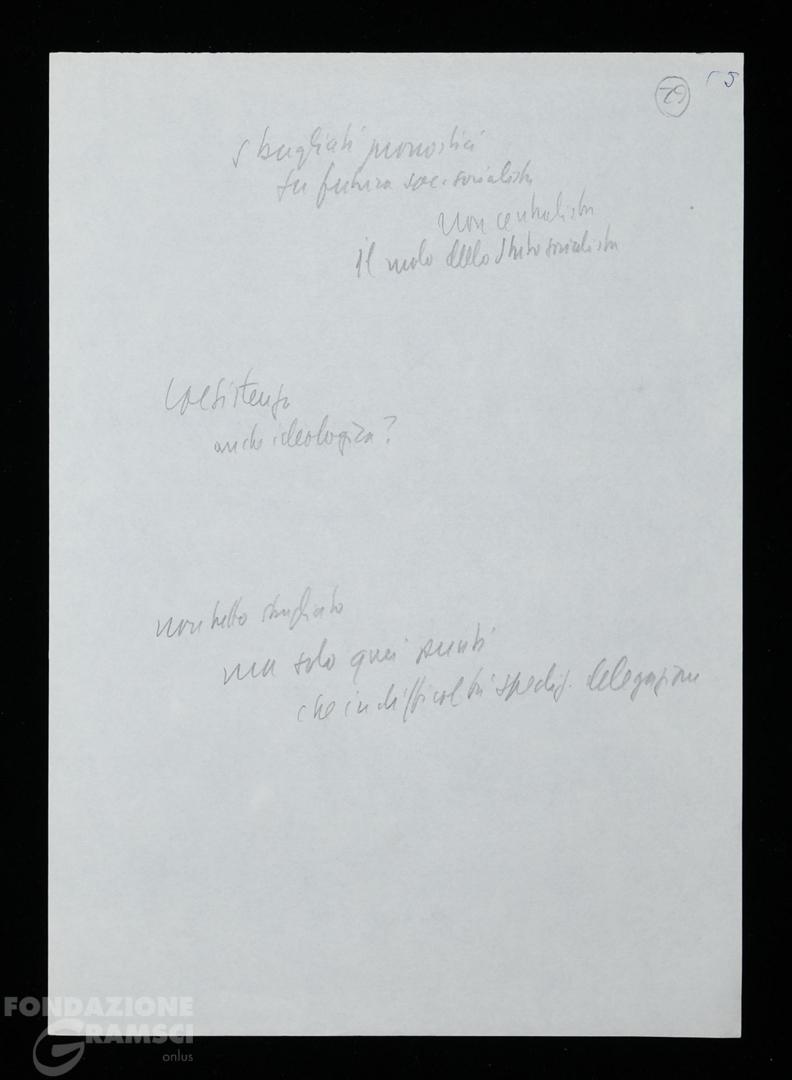 52
5
sbagliati pronostici
su futura soc. socialista
non centralista
il ruolo dello Stato socialista
coesistenza
anche ideologica?
non tutto sbagliato
ma solo quei punti
che in difficoltà delegazione
FONDAZIONE
GRAMSCI
onlus